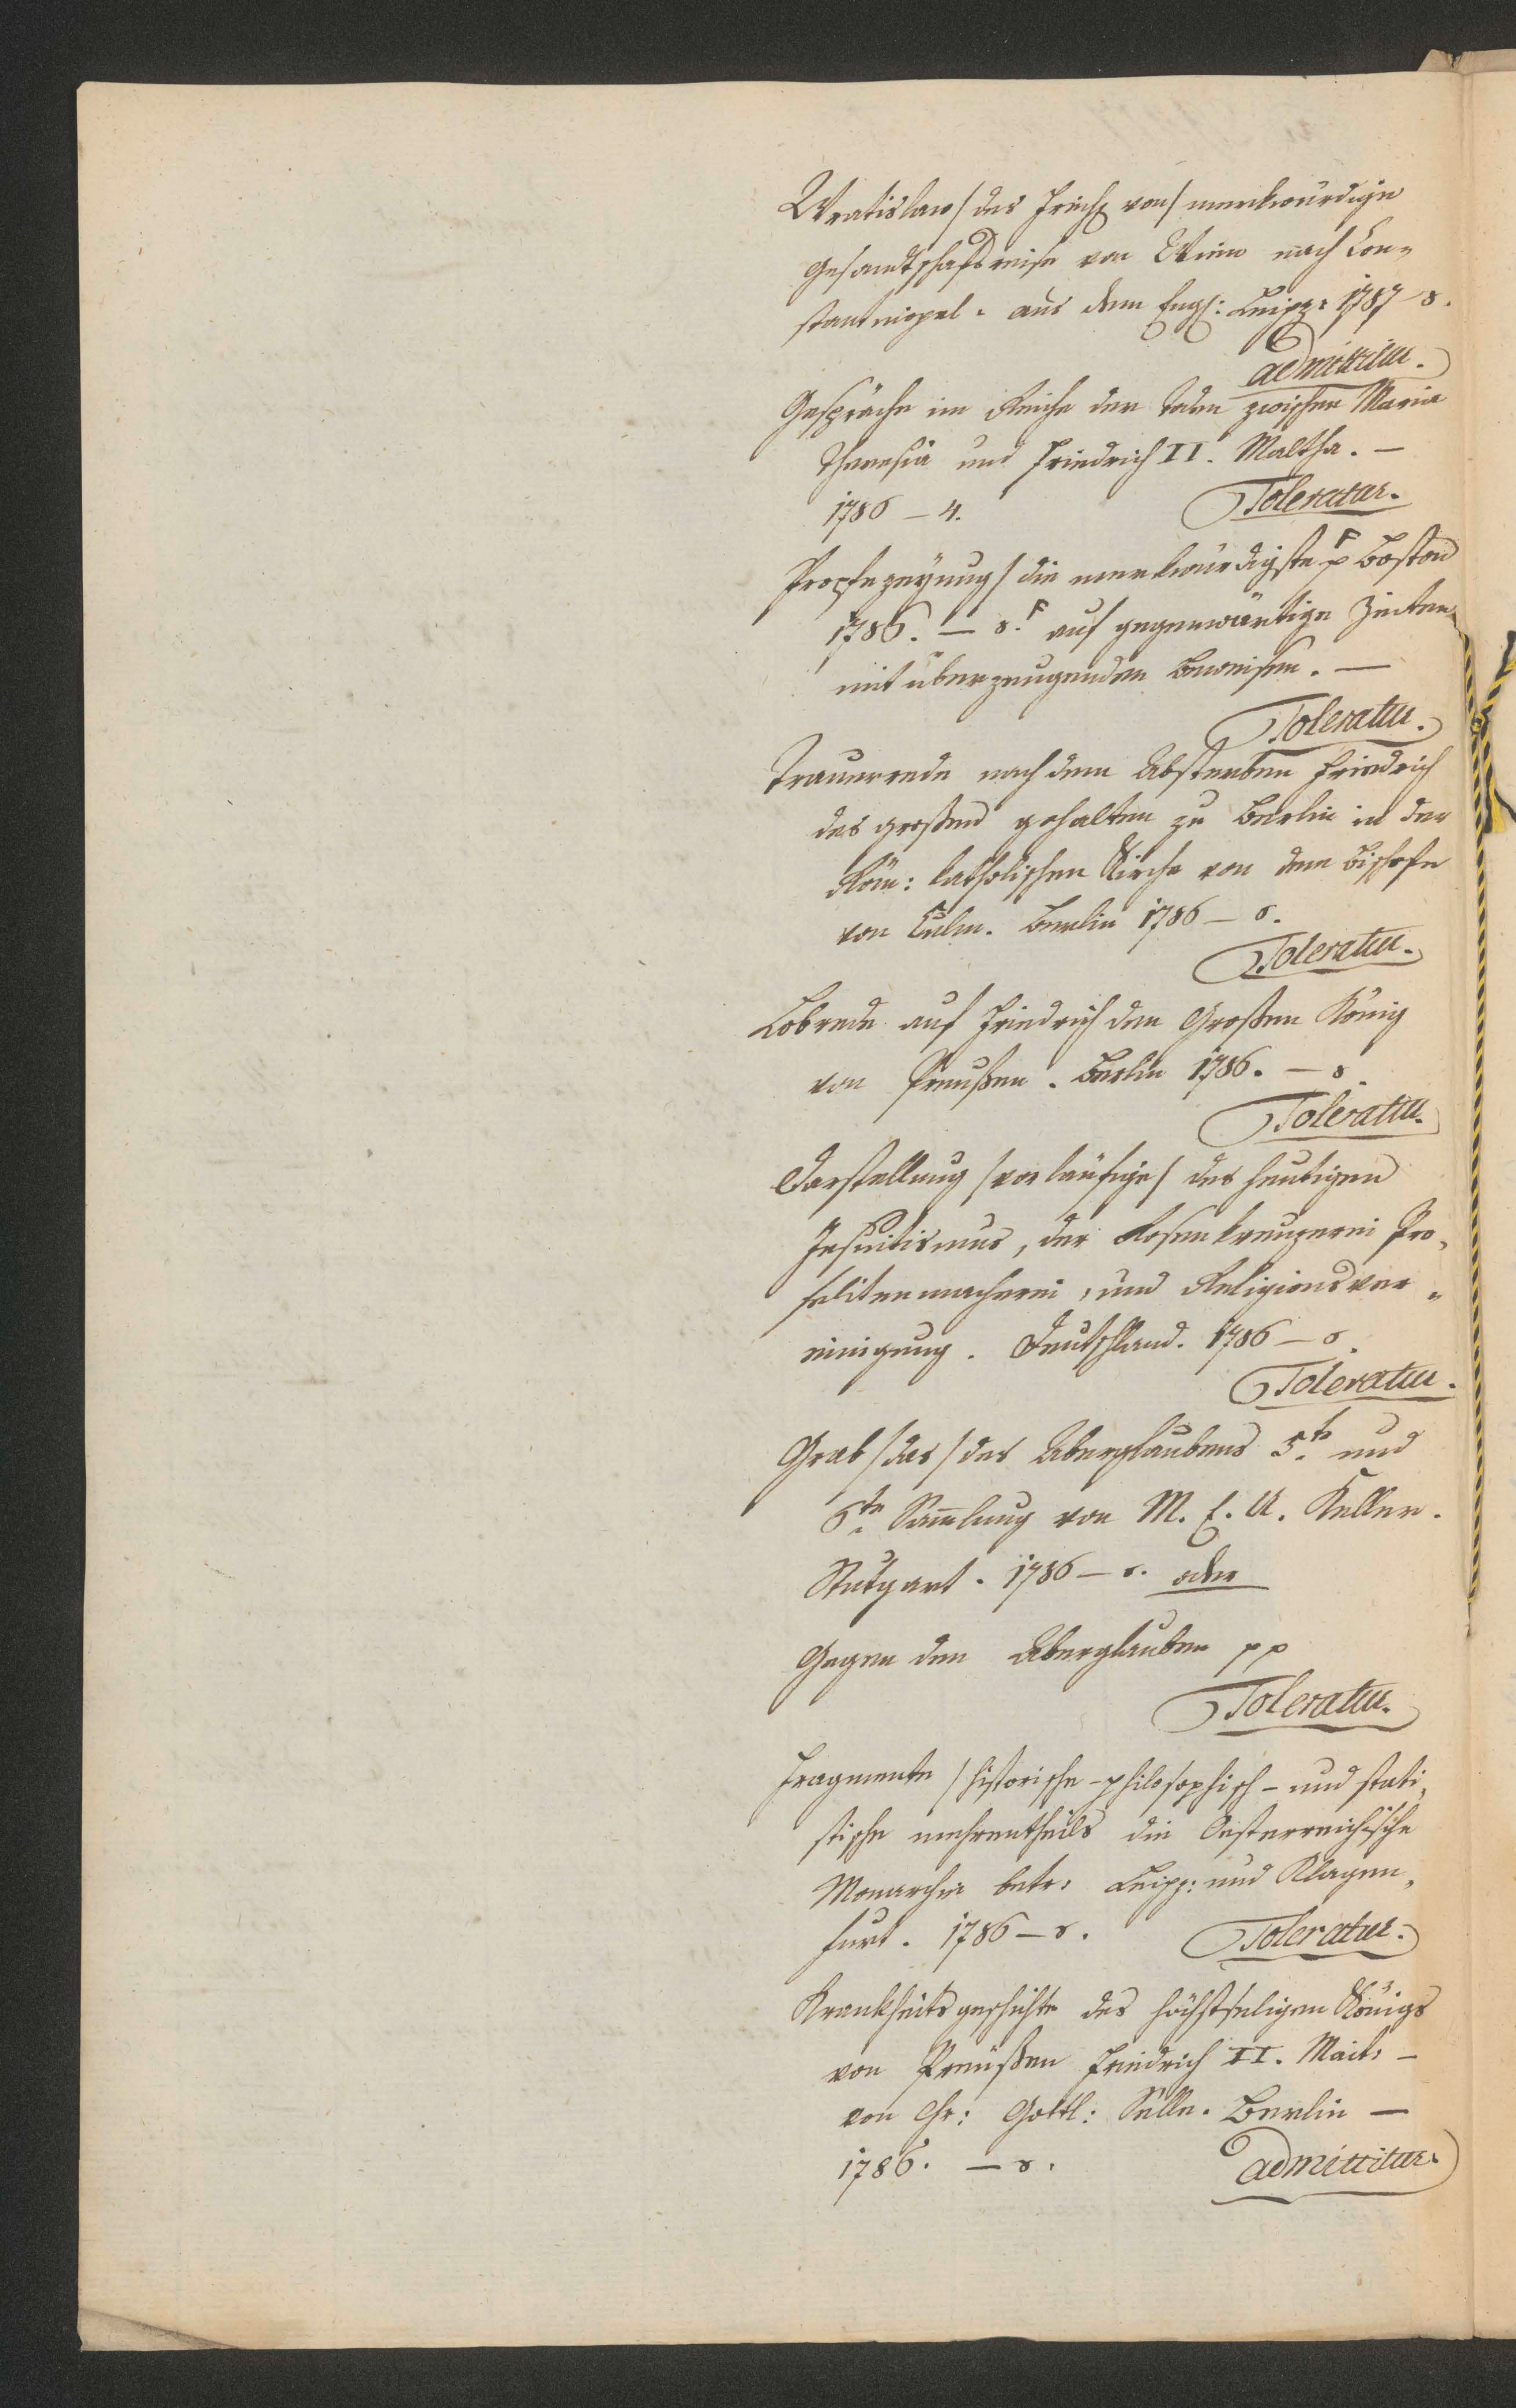 Wratislaw /des Freih von/ merkwürdige
Gesandtschaftsreise von Wien nach Con„
stantinopel. aus dem Engl: Leipz: 1787 – 8.
admittitur.
Gespräche im Reiche der Toden zwischen Maria
Theresia und Friedrich II. Maltha. —
1786 – 4. Toleratur.
Prophezeyung / die merkwürdigste F p Boston
1786. — 8. F auf gegenwärtige Zeiten
mit überzeugenden Beweisen. —
Toleratur.
Trauerrede nach dem Absterben Friedrich
des großen gehalten zu Berlin in der
Röm: katholischen Kirche von dem Bischofe
von Culm. Berlin 1786 — 8.
Toleratur.
Lobrede auf Friedrich den Großen König
von Preußen. Berlin 1786. — 8.
Toleratur.
Darstellung /vorläufige/ des heutigen
Jesuitismus, der Rosenkreuzerei Pro„
selitenmacherei, und Religionsver„
einigung. Deutschland. 1786 — 8.
Toleratur.
Grab /das/ des Aberglaubens 5te und
6te Samlung von M. E. U. Keller.
Stutgart. 1786 — 8. oder
Gegen den Aberglauben pp
Toleratur.
Fragmente / historische - philosophisch - und stati„
stische mehrentheils die Oesterreichische
Monarchie betr: Leipz: und Klagen„
furt. 1786 — 8. Toleratur.
Krankheitsgeschichte des höchstseligen Königs
von Preußen Friedrich II. Mait: —
von Chr: Gottl: Selle. Berlin —
1786. — 8. admittitur.